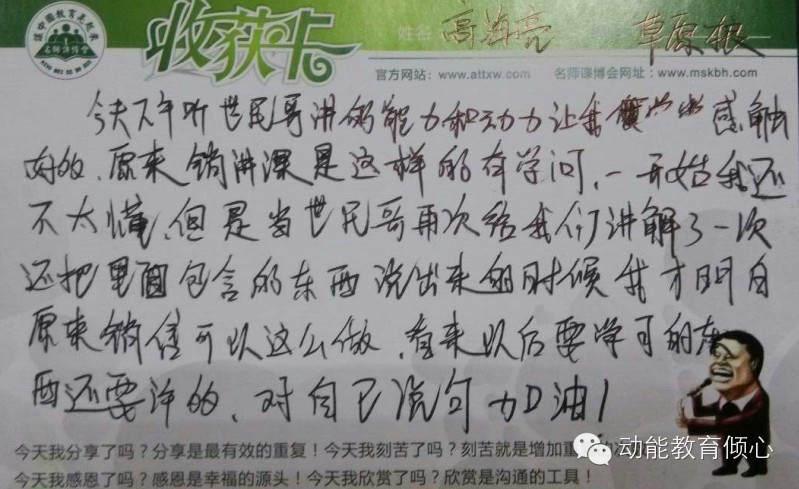 收获卡
姓名 高海亮 草原狼
官方网站：www.attxw.com 名师课博会网址：www.mskbh.com
今天下午听世民哥讲的能力和动力让我 感触
好的、原来销讲课是这样的有学问，一开始我还
不太懂，但是当世民哥再次给我们讲解了一次
还把里面包含的东西说出来的时候我才明白
原来销售可以这么做，看来以后要学习的东
西还要许的、对自己说句加油！
今天我分享了吗？分享是最有效的重复！今天我刻苦了吗？刻苦就是增加重
今天我感恩了吗？感恩是幸福的源头！今天我欣赏了吗？欣赏是沟通的工具！
动能教育倾心